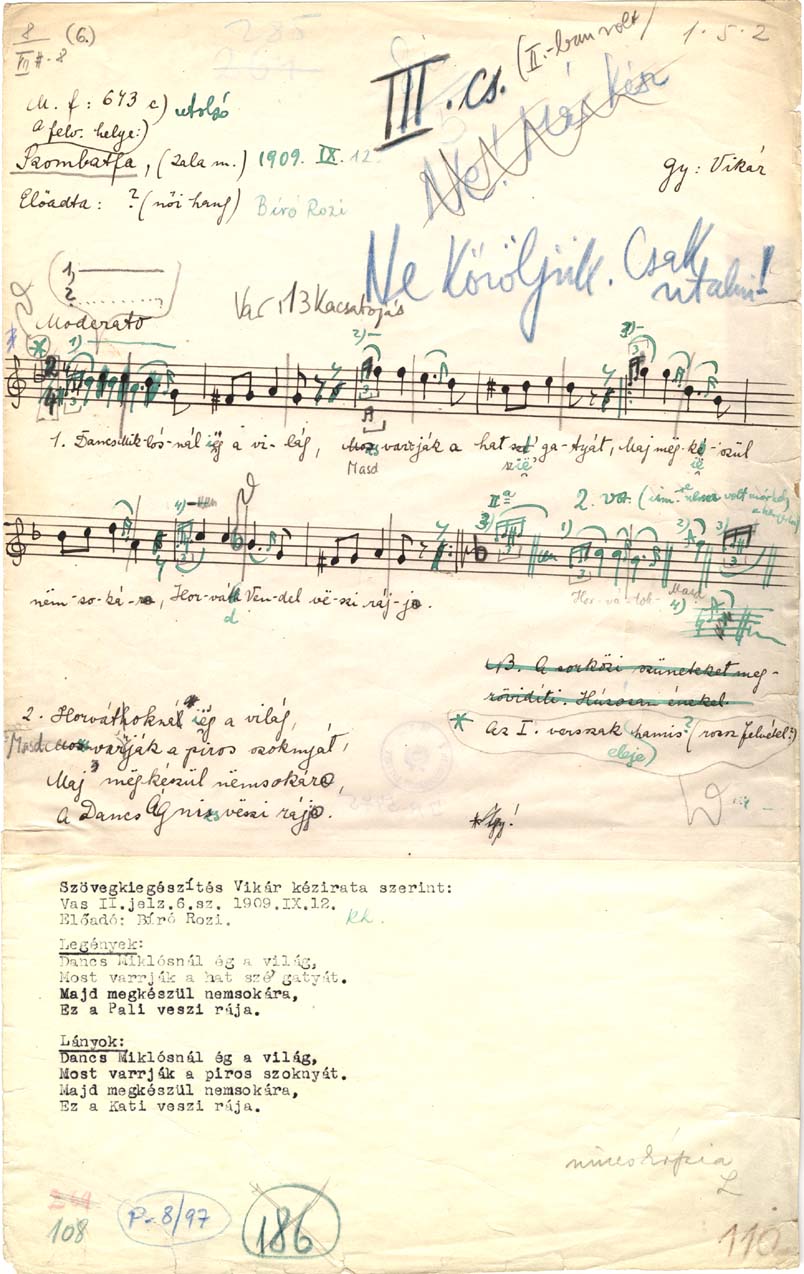 8
VII #. 8
(6.)
285
III. cs. (II.-ban volt)
1. 5. 2
M. f: 673 c) utolsó
a felv. helye:)
Szombatfa, (Zala m.) 1909. IX. 12.
Gy: Vikár
Előadta: ? (női hang) Bíró Rozi
Ne közöljük. Csak
utalni!
1.
2.
Var: 13 Kacsatojás
Moderato
1. Dancs Mik-lós-nál ég a vi-lág, varrják a hat ga-tyát, Maj még-ké-szül
Masd
2. va.
nëm-so-ká-ra, Hor-váth Ven-del vë-szi ráj-ja.
Hor-vá-tok-
Masd
NB. A sorközi szüneteket meg-
rövidíti. Húzósan énekel.
* Az I. verszak eleje hamis? (rossz felvétel?)
2. Horváthoknál ég a világ,
Masd varják a piros szoknyát,
Maj mëgkészül nëmsokára,
A Dancs Ágnis vëszi rája.
*Így!
Szövegkiegészítés Vikár kézirata szerint:
Vas II.jelz.6.sz. 1909.IX.12.
Előadó: Bíró Rozi.
Legények:
Dancs Miklósnál ég a világ,
Most varrják a hat szé' gatyát.
Majd megkészül nemsokára,
Ez a Pali veszi rája.
Lányok:
Dancs Miklósnál ég a világ,
Most varrják a piros szoknyát.
Majd megkészül nemsokára,
Ez a Kati veszi rája.
nincs kópia
L
108
P-8/97
186
110